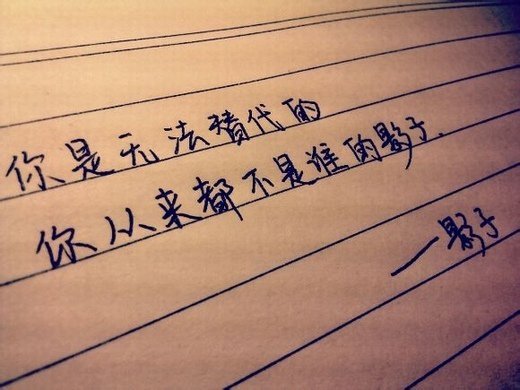 你是无法替代的
你从来都不是谁的影子.
—影子